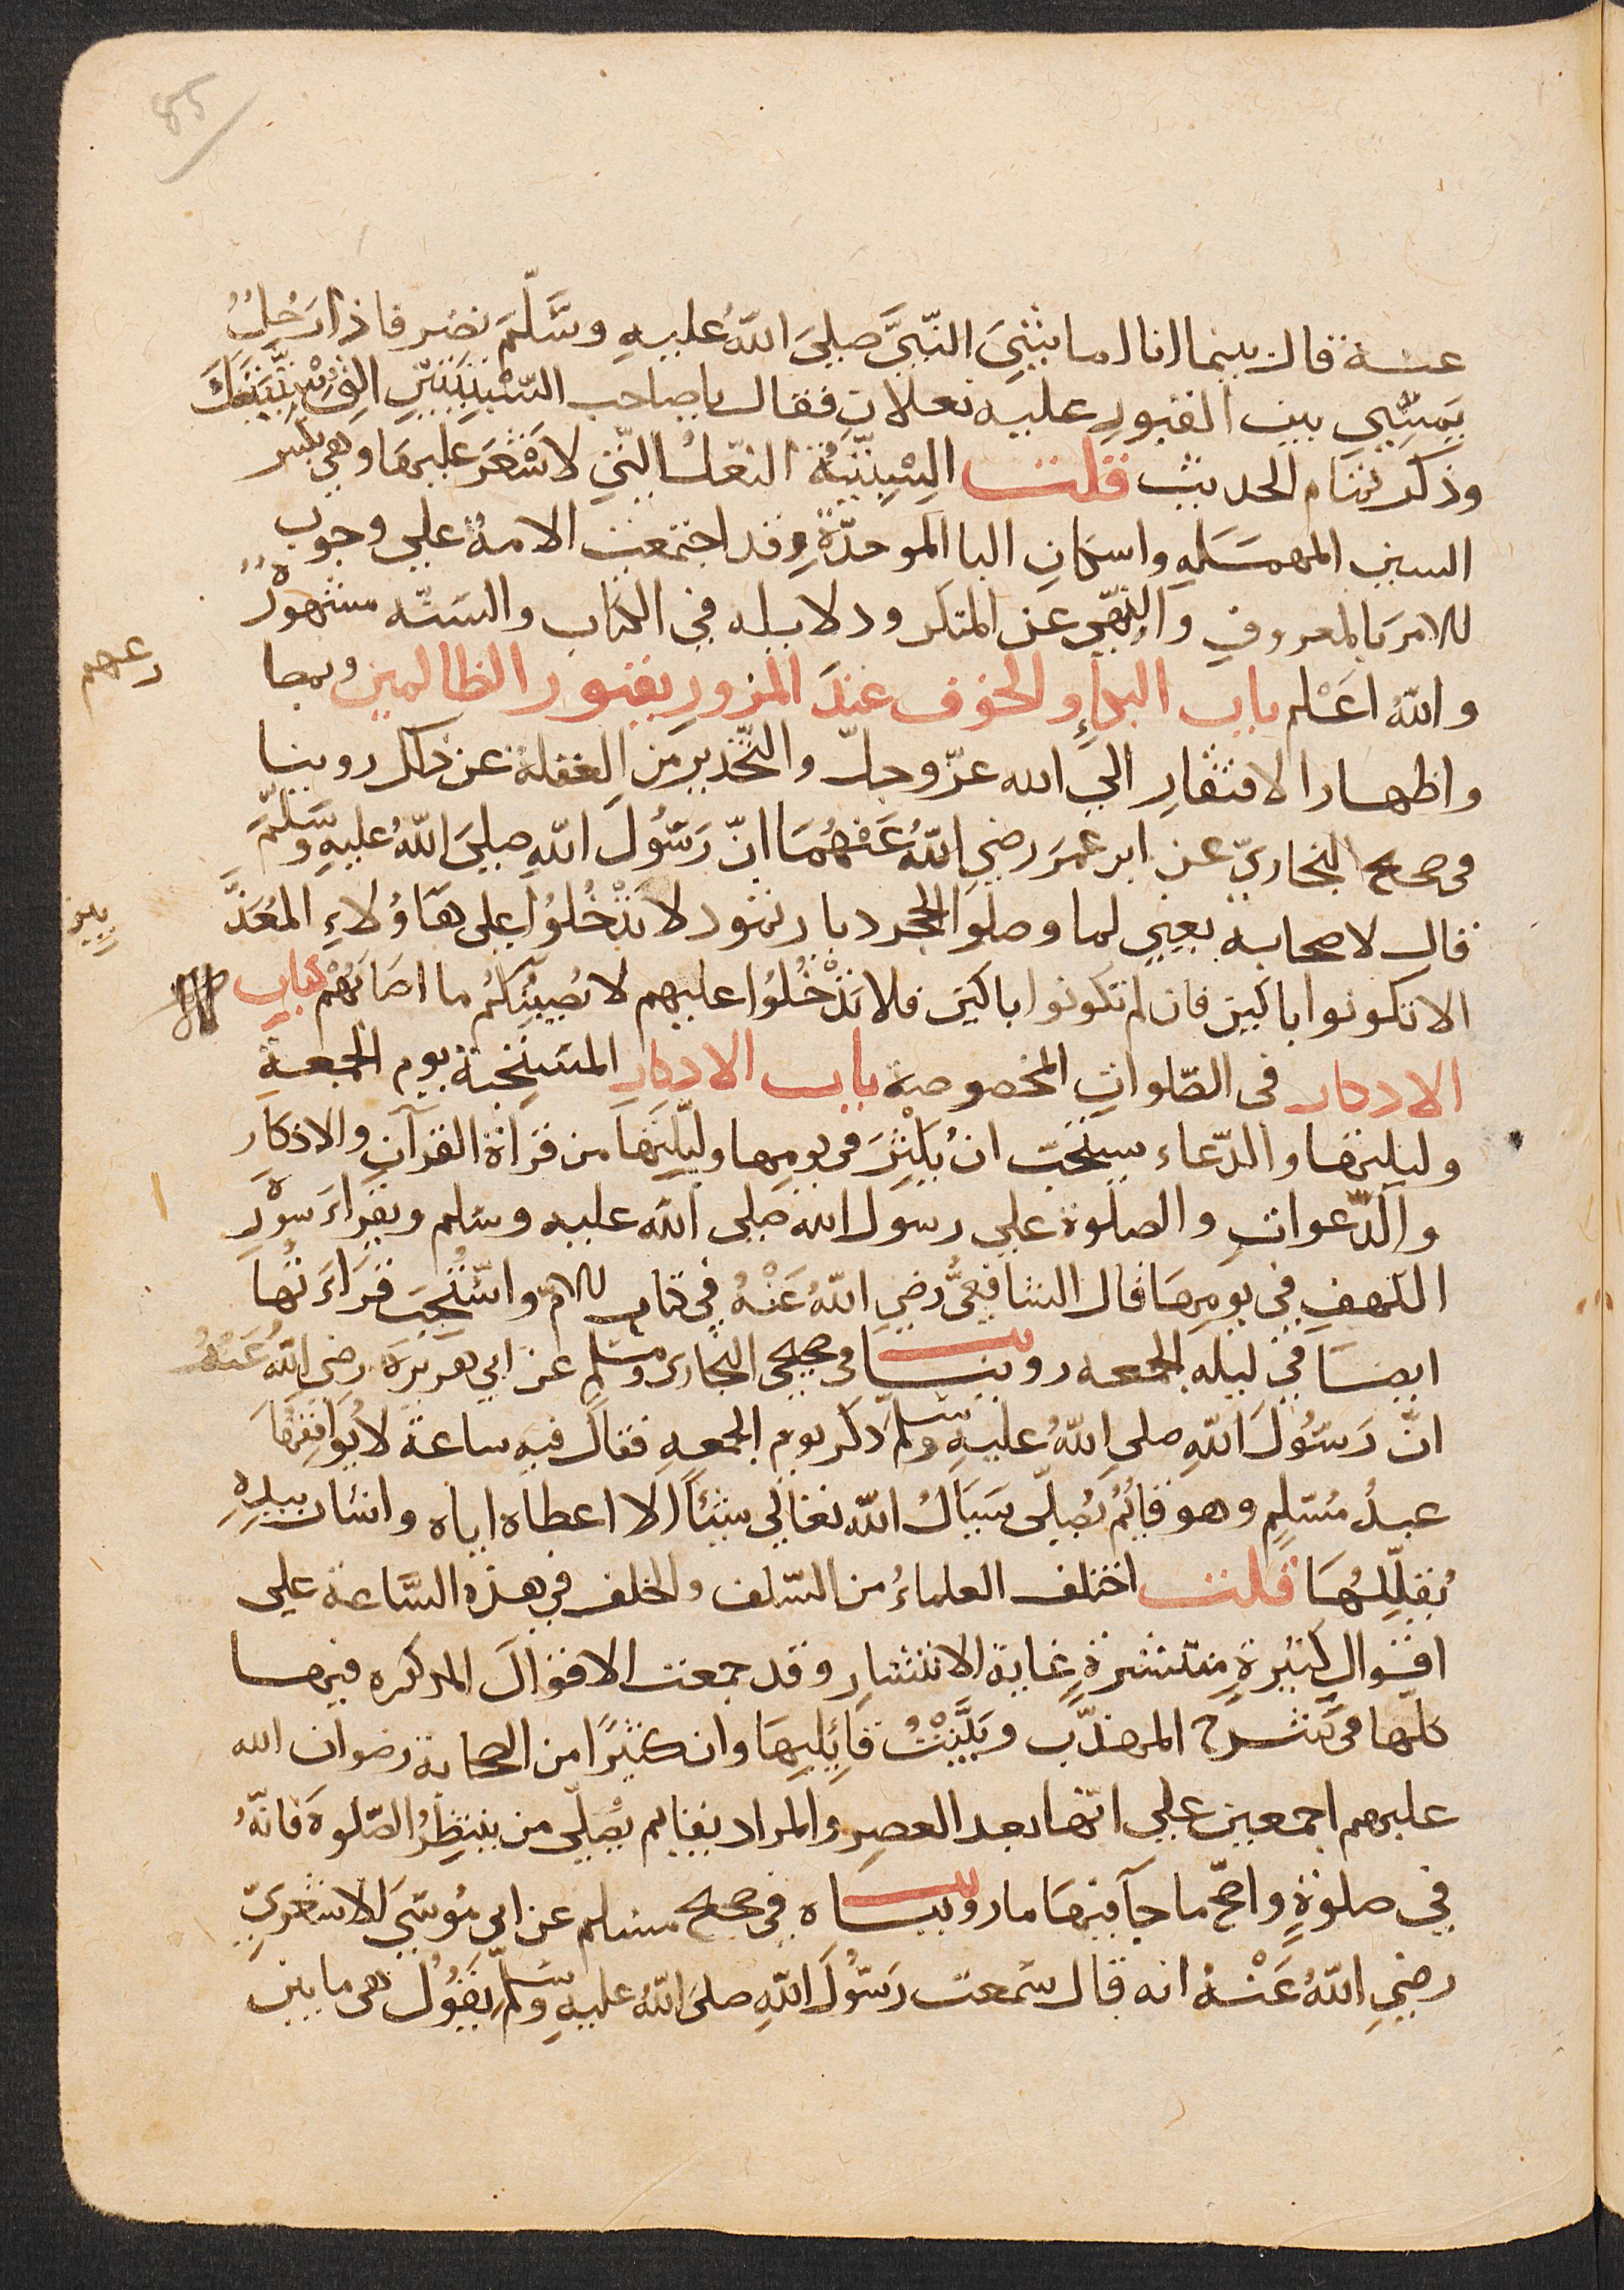 85
عنه قال بينما انا اماشي النّبيَّ صلى اللّهُ عليهِ وسَلَّمَ نضر فاذا رَجُلٌ
يَمشِي بين القبورِ عليه نعلانِ فقال يا صاحب السّبْتِيَّتَيْنِ الْقِ سِبْتِيَّتَيْكَ
وذكر تمام الحديث قلت السِبْتِيّةُ النّعلُ الّتي لا شَعْرَ عليها وهي بكسر
السين المهمَلهِ واسكانِ البا الموحدّةِ وقد اجتمعت الامةُ على وجوب
الامر بالمعروفِ والنّهي عن المنكر ودلايله في الكتاب والسّنّه مشهورةٌ
واللّهُ اعْلم باب البكآءِ والخوف عندَ المرورِ بقبور الظالمين وبمصا
رعهم
واظهار الافتقارِ الى الله عزّ وجلّ والتّحذيرِ من الغفلة عن ذلك روينا
فى صحيح البخاريّ عن ابن عمرَ رضي اللّهُ عَنهُمَا انّ رَسُولَ اللّهِ صلىَ اللّهُ عليهِ وسَلَّمَ
قال لاصحابه يعني لما وصلوا الحجر ديار ثمود لا تَدْخُلُوا على هَاؤُلاءِ المُعَذَّ
بين
الا تكونوا باكين فان لم تكونوا باكين فلا تَدْخُلُوا عليهم لا يُصِيبُكُم ما اصَابَهُمْ كتاب
الاذكار فى الصّلواتِ المخصوصة باب الاذكارِ المستحبة يوم الجمعةِ
وليلتها والدّعاء يستحَبّ ان يُكْثِرَ فى يومِها وليْلَتِهَا من قراةِ القرآنِ والاذكار
والدّعواتِ والصلوة على رسول الله صَلى اللّه عليه وسلم ويقراءَ سُورة
الكهفِ في يومِهَا قال الشافِعيُّ رضِي اللّهُ عَنْهُ في كتاب الامّ واسْتُحِبّ قِرَاءَتُها
ايضًا في ليله الجمعه روينا فى صحيحي البخارى ومسلم عن ابي هريرَةَ رضي اللّهُ عَنْهُ
انّ رَسُولَ اللّهِ صلى اللّهُ عليهِ وسلّم ذكر يوم الجمعهِ فقالَ فيه ساعةٌ لا يُوَافِقُهَا
عبدٌ مُسْلِمٌ وهو قايمٌ يُصلّي يَسالُ اللّه تعالي شئًا الا اعطاه اياه واشار بيدِهِ
يُقلِّلُهَا قلت اختلف العلماءُ من السّلف والخلف في هذه السّاعة على
اقوالٍ كثيرةٍ منتشرةٍ غايةَ الانتشارِ وقد جمعت الاقوالَ المذكره فيها
كلّها فى شرح المهذّب وبَيَّنْتُ قايليهَا وان كثيرًا من الصحابة رضوان الله
عليهم اجمعين على انّها بعد العصرِ والمراد بقايم يصلّي من ينتظِرُ الصّلوةَ فانّهُ
في صلوةٍ واصحّ ما جآ فيها ما رويناه في صحيح مسلم عن ابي مُوسَى الاشعريّ
رضِي اللّهُ عَنْهُ انه قال سَمعت رَسُولَ اللّهِ صلىَ اللّهُ عليهِ وسلّم يقُولُ هي ما بين